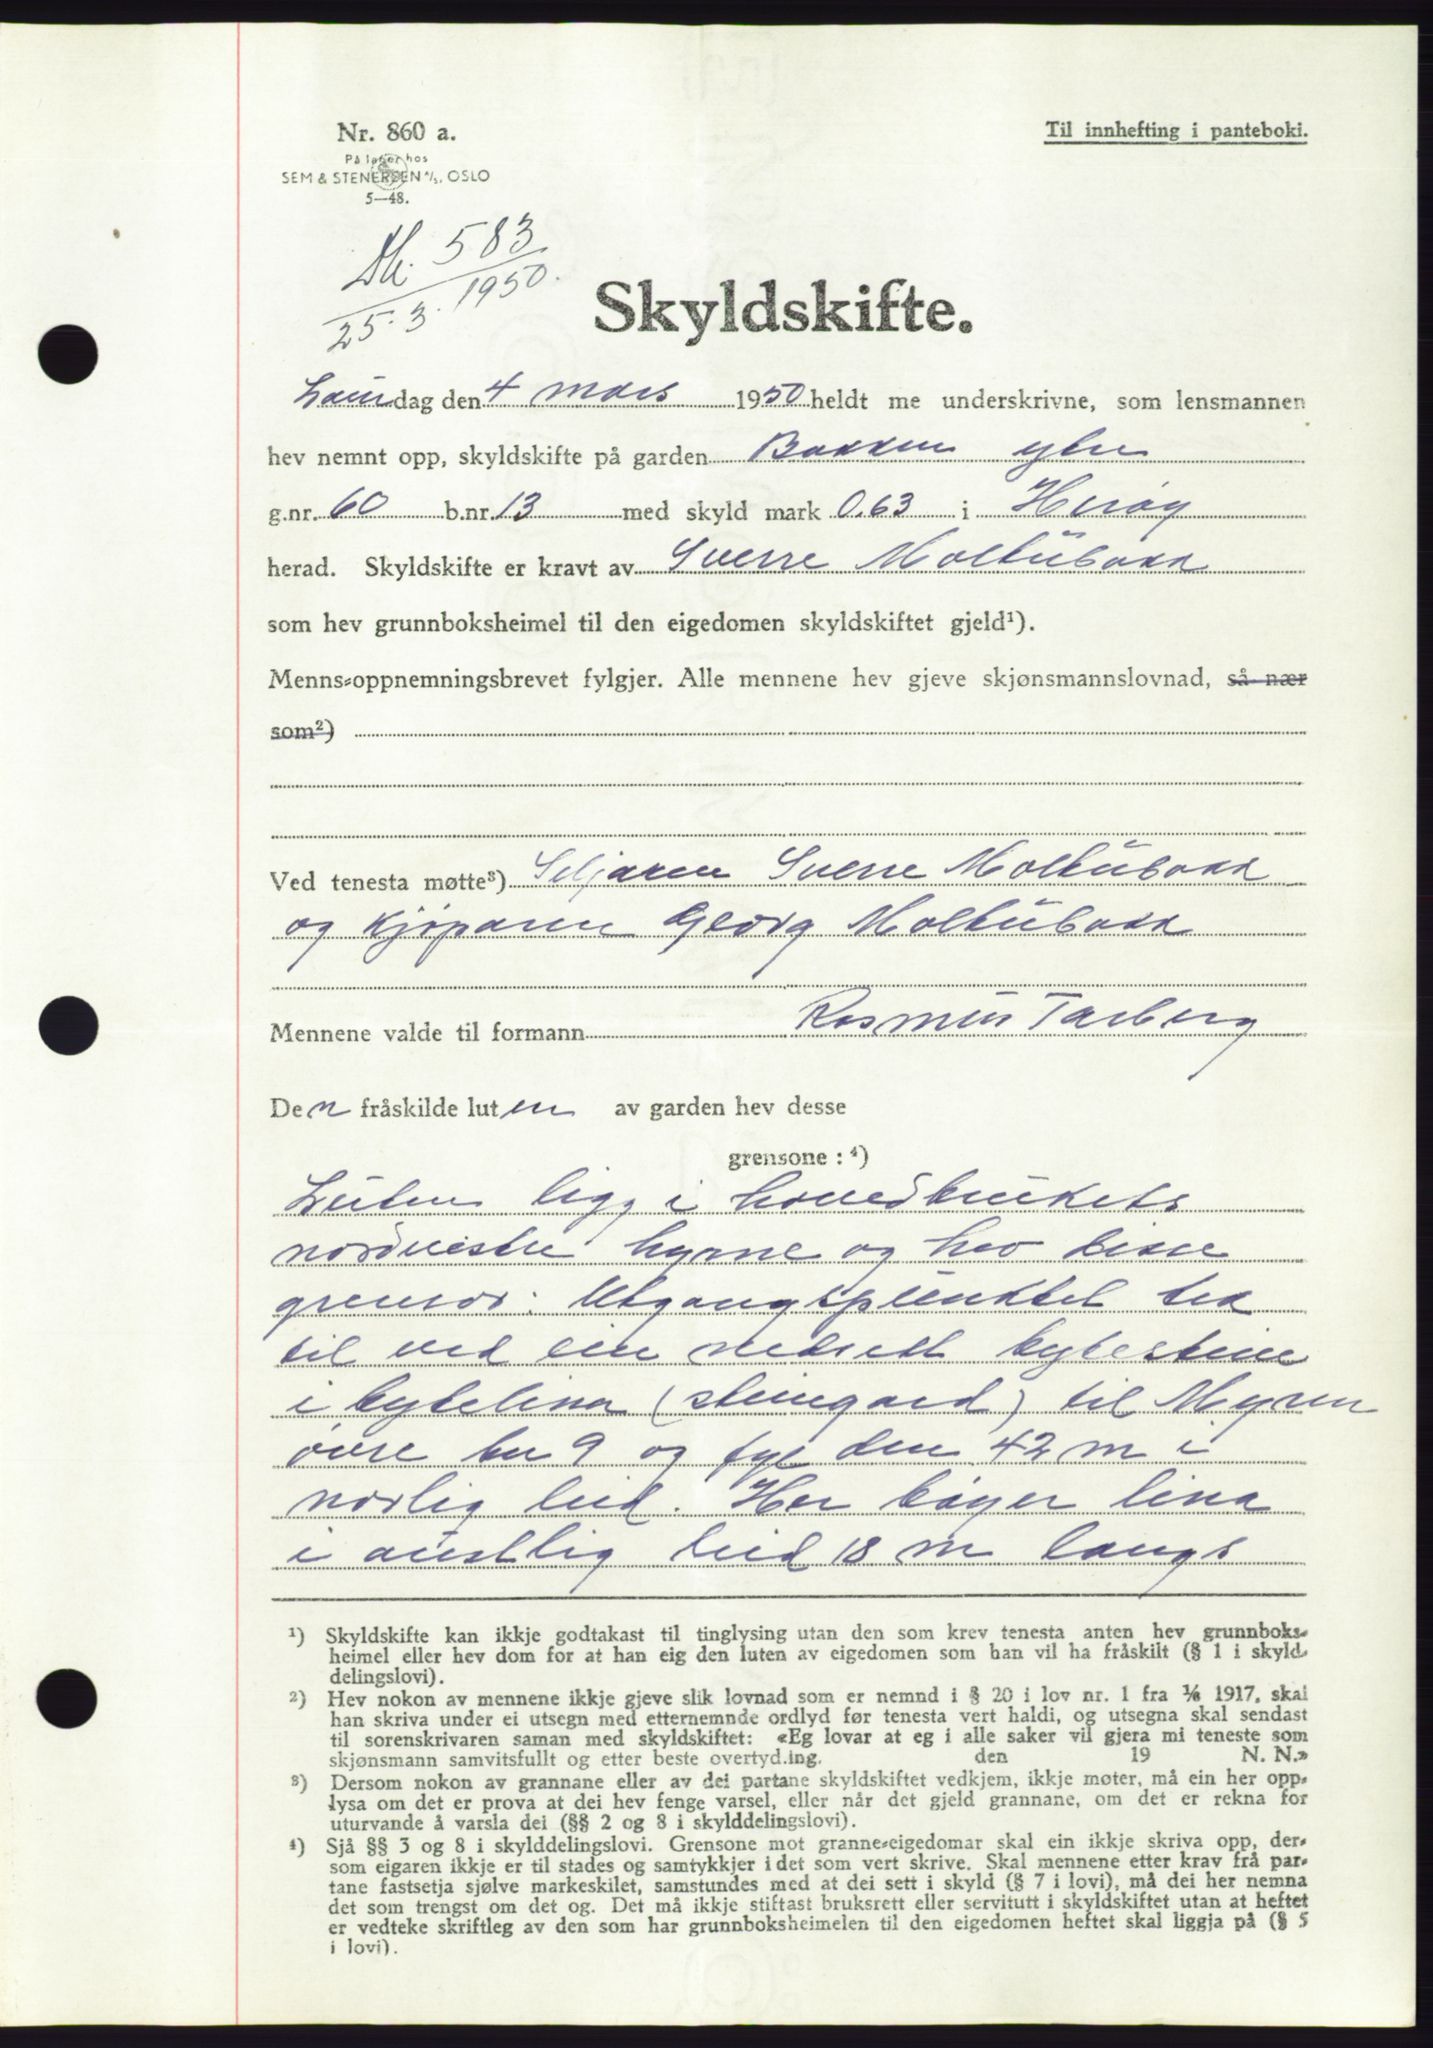 Nr. 860 a.
Til innhefting i panteboki.
På lager hos
SEM & STENERSEN A/S, OSLO
5—48.
583
25.3.1950.
Skyldskifte.
Laurdag den 4 mars 1950 heldt me underskrivne, som lensmannen
hev nemnt opp, skyldskifte på garden Bakken ytre
g.nr. 60 b.nr. 13 med skyld mark 0.63 i Herøy
herad. Skyldskifte er kravt av Sverre Moltubakk
som hev grunnboksheimel til den eigedomen skyldskiftet gjeld¹).
Menns-oppnemningsbrevet fylgjer. Alle mennene hev gjeve skjønsmannslovnad, så nær
som²)
Ved tenesta møtte³) Seljaren Sverre Moltubakk
og kjøparen Georg Moltubakk
Mennene valde til formann Rasmus Tarberg
Den fråskilde luten av garden hev desse
grensone : ⁴)
Luten ligg i hovedbrukets
nordvestre hyrne og hev disse
grensor: Utgangspunktet tek
til ved ein nedsett bytestein
i bytelina (steingard) til Myren
øvre bn 9 og fyl den 42 m i
norlig leid. Her bøyer lina
i austlig leid 18 m langs
¹) Skyldskifte kan ikkje godtakast til tinglysing utan den som krev tenesta anten hev grunnboks-
heimel eller hev dom for at han eig den luten av eigedomen som han vil ha fråskilt (§ 1 i skyld
delingslovi).
²) Hev nokon av mennene ikkje gjeve slik lovnad som er nemnd i § 20 i lov nr. 1 fra 1/6 1917, skal
han skriva under ei utsegn med etternemnde ordlyd før tenesta vert haldi, og utsegna skal sendast
til sorenskrivaren saman med skyldskiftet: «Eg lovar at eg i alle saker vil gjera mi teneste som
skjønsmann samvitsfullt og etter beste overtyd.ing. den 19 N. N.»
³) Dersom nokon av grannane eller av dei partane skyldskiftet vedkjem, ikkje møter, må ein her opp-
lysa om det er prova at dei hev fenge varsel, eller når det gjeld grannane, om det er rekna for
uturvande å varsla dei (§§ 2 og 8 i skylddelingslovi).
⁴) Sjå §§ 3 og 8 i skylddelingslovi. Grensone mot granne-eigedomar skal ein ikkje skriva opp, der-
som eigaren ikkje er til stades og samtykkjer i det som vert skrive. Skal mennene etter krav frå par-
tane fastsetja sjølve markeskilet, samstundes med at dei sett i skyld (§ 7 i lovi), må dei her nemna
det som trengst om det og. Det må ikkje stiftast bruksrett eller servitutt i skyldskiftet utan at heftet
er vedteke skriftleg av den som har grunnboksheimelen til den eigedomen heftet skal liggja på (§ 5
i lovi).